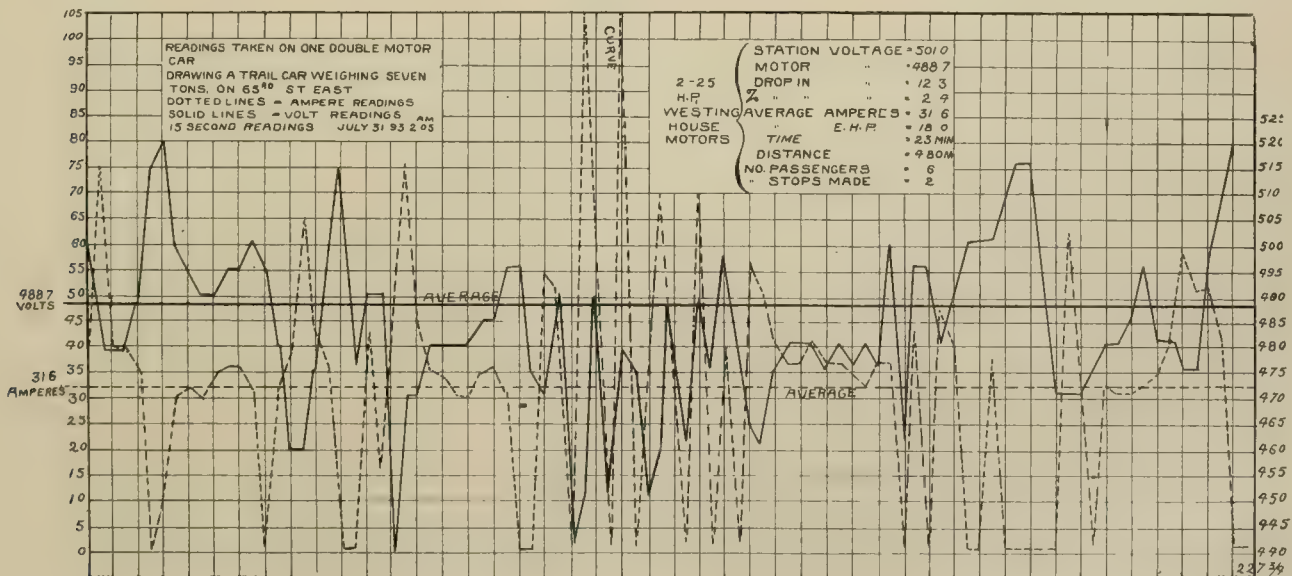 105
100
95
90
85
80
75
70
65
60
55
50
45
40
35
30
25
20
15
10
5
0
4887
VOLTS
316
AMPERES
READINGS TAKEN ON ONE DOUBLE MOTOR
CAR
DRAWING A TRAIL CAR WEIGHING SEVEN
TONS, ON 63RD ST EAST
DOTTED LINES = AMPERE READINGS
SOLID LINES = VOLT READINGS AM
15 SECOND READINGS JULY 31 93 2 05
CURVE
2-25
H.P.
WESTING
HOUSE
MOTORS
STATION VOLTAGE = 5010
MOTOR " = 4887
DROP IN " = 12 3
% " " = 2 4
AVERAGE AMPERES = 31 6
" E.H.P. = 18 0
TIME = 23 MIN
DISTANCE = 480M
NO. PASSENGERS = 6
" STOPS MADE = 2
AVERAGE
AVERAGE
525
520
515
510
505
500
495
490
485
480
475
470
465
460
455
450
445
440